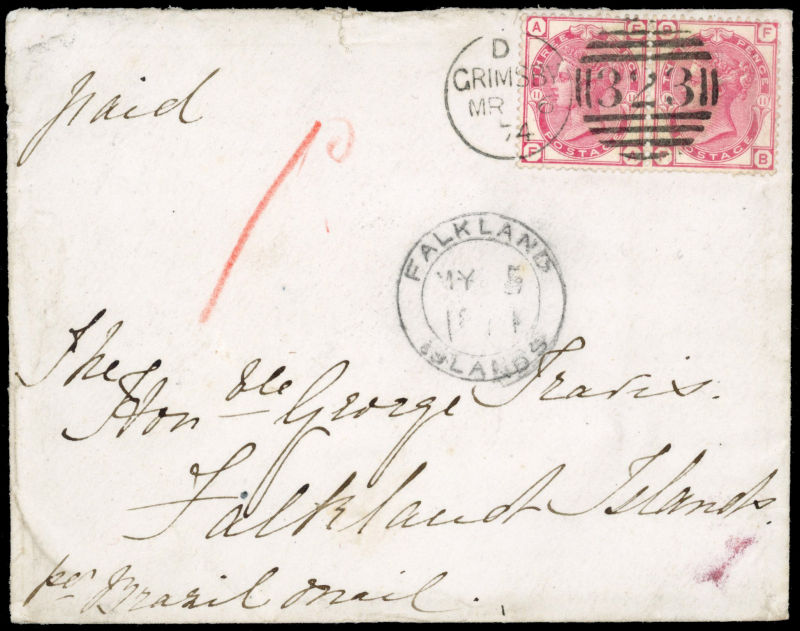 paid
D
GRIMSBY
MR
74
323
A
F
F
THREE PENCE
11
11
POSTAGE
F
B
POSTAGE
FALKLAND
MY 5
ISLANDS
The
Honble George Travis.
Falkland Islands.
per Brazil Mail.